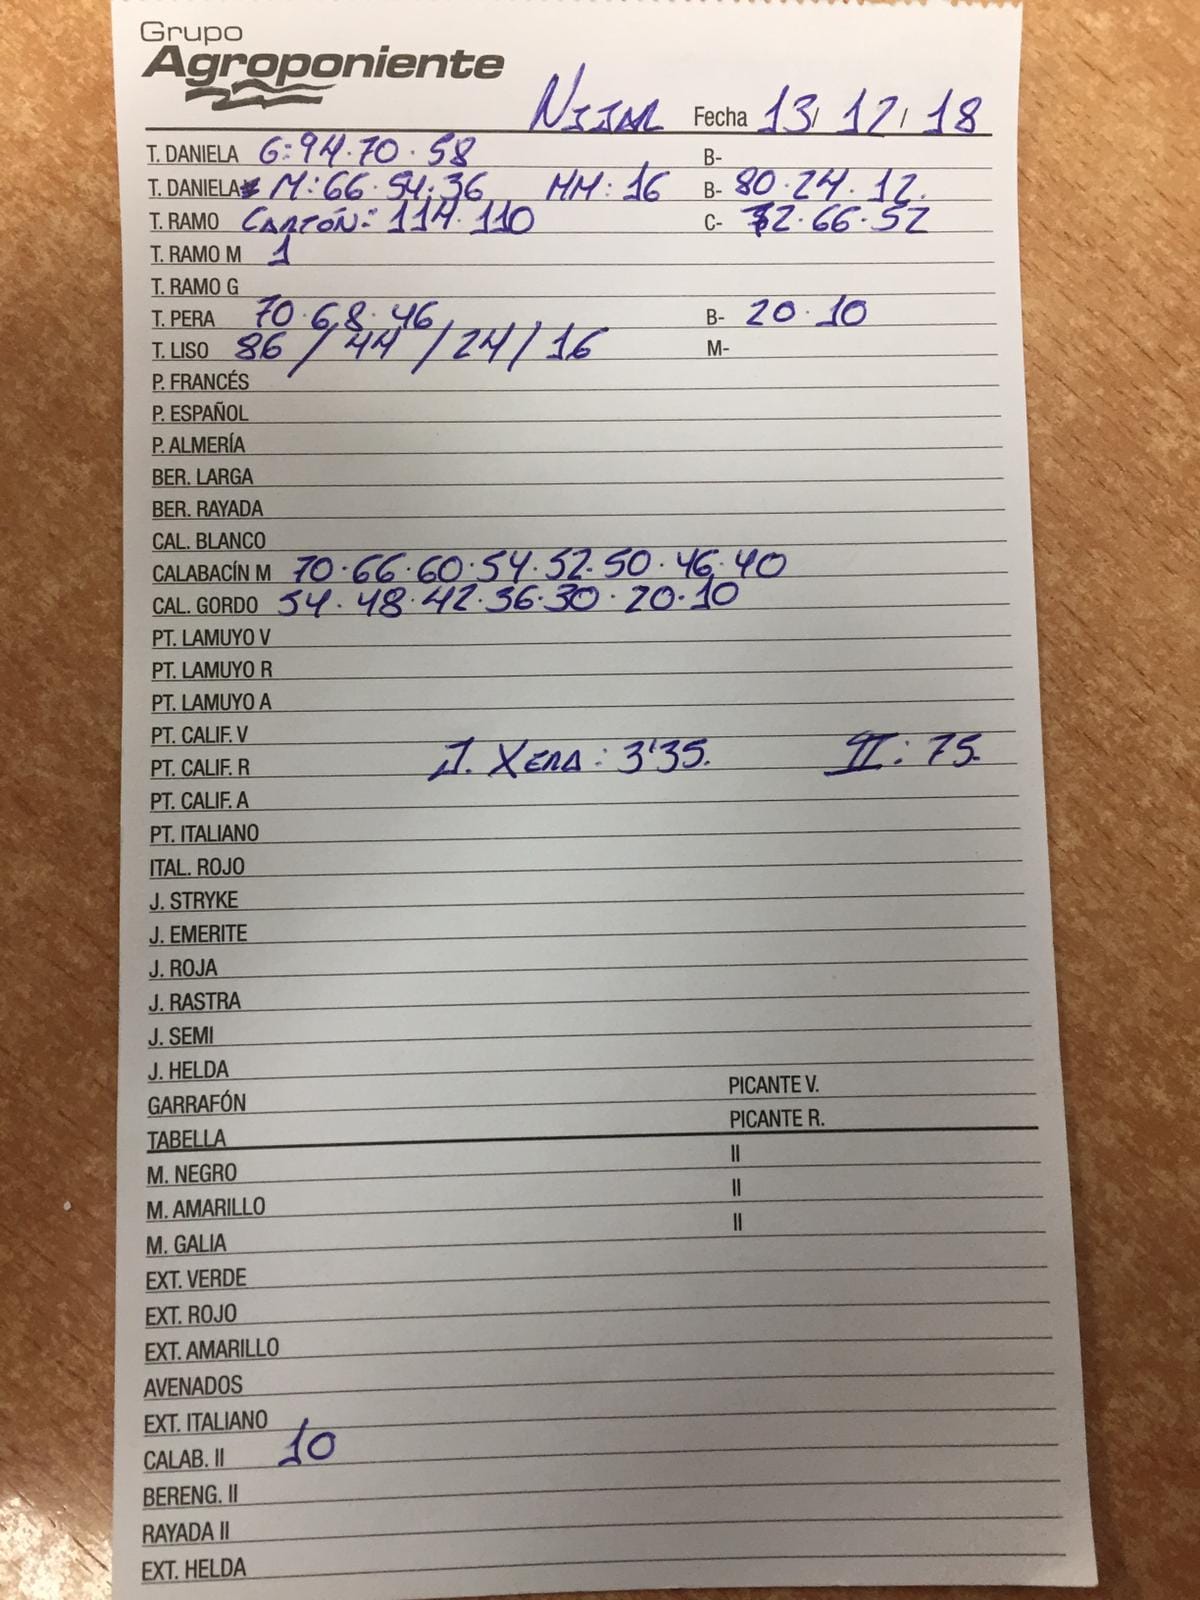 Grupo
Agroponiente
NIJAR Fecha 13/ 12/ 18
T. DANIELA G: 94.70.58 B-
T. DANIELA M: 66.54.36 MM: 16 B- 80.24.12.
T. RAMO CARTÓN: 114.110 C- 72.66.52
T. RAMO M 1
T. RAMO G
T. PERA 70.68.46 B- 20.10
T. LISO 86 / 44 / 24 / 16 M-
P. FRANCÉS
P. ESPAÑOL
P. ALMERÍA
BER. LARGA
BER. RAYADA
CAL. BLANCO
CALABACÍN M 70.66.60.54.52.50.46.40
CAL. GORDO 54.48.42.36.30.20.10
PT. LAMUYO V
PT. LAMUYO R
PT. LAMUYO A
PT. CALIF. V
PT. CALIF. R J. XERA: 3'35. II: 75.
PT. CALIF. A
PT. ITALIANO
ITAL. ROJO
J. STRYKE
J. EMERITE
J. ROJA
J. RASTRA
J. SEMI
J. HELDA
GARRAFÓN PICANTE V.
TABELLA PICANTE R.
M. NEGRO II
M. AMARILLO II
M. GALIA II
EXT. VERDE
EXT. ROJO
EXT. AMARILLO
AVENADOS
EXT. ITALIANO
CALAB. II 10
BERENG. II
RAYADA II
EXT. HELDA